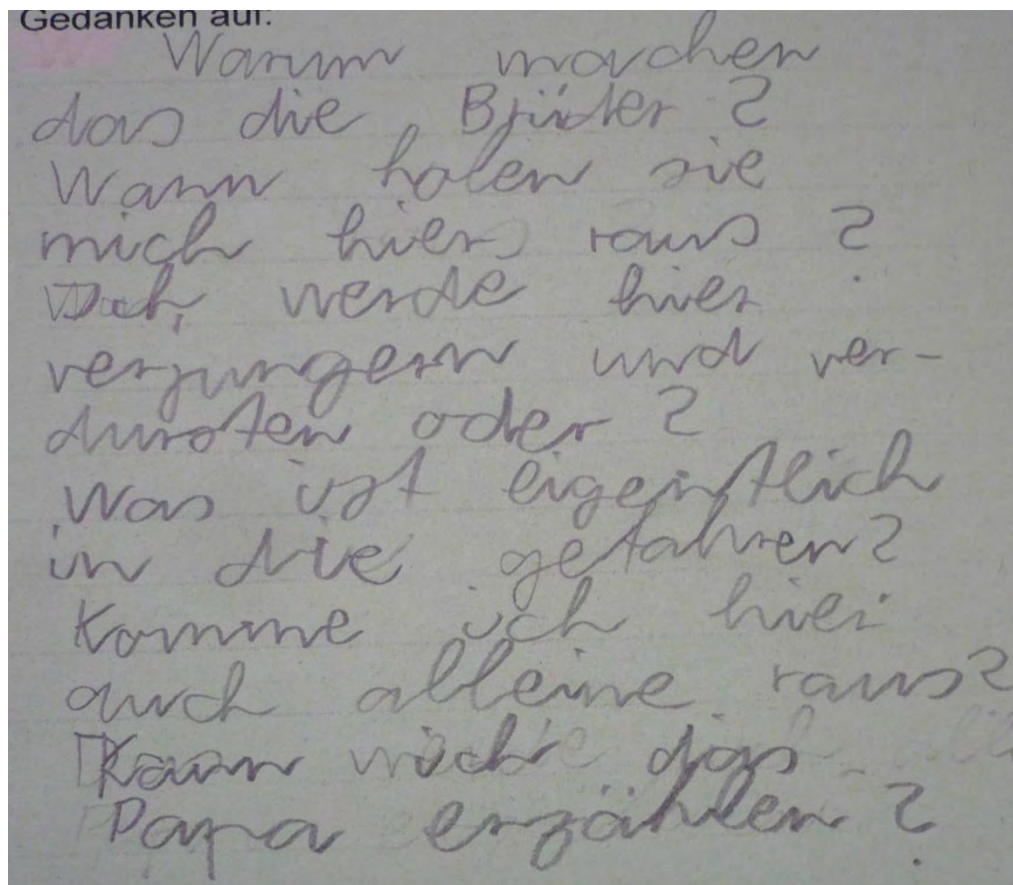 Gedanken auf:
Warum machen
das die Brüder?
Wann holen sie
mich hier raus?
Ich werde hier
verhungern und ver-
dursten oder?
Was ist eigentlich
in die gefahren?
Komme ich hier
auch alleine raus?
Kann ich das
Papa erzählen?